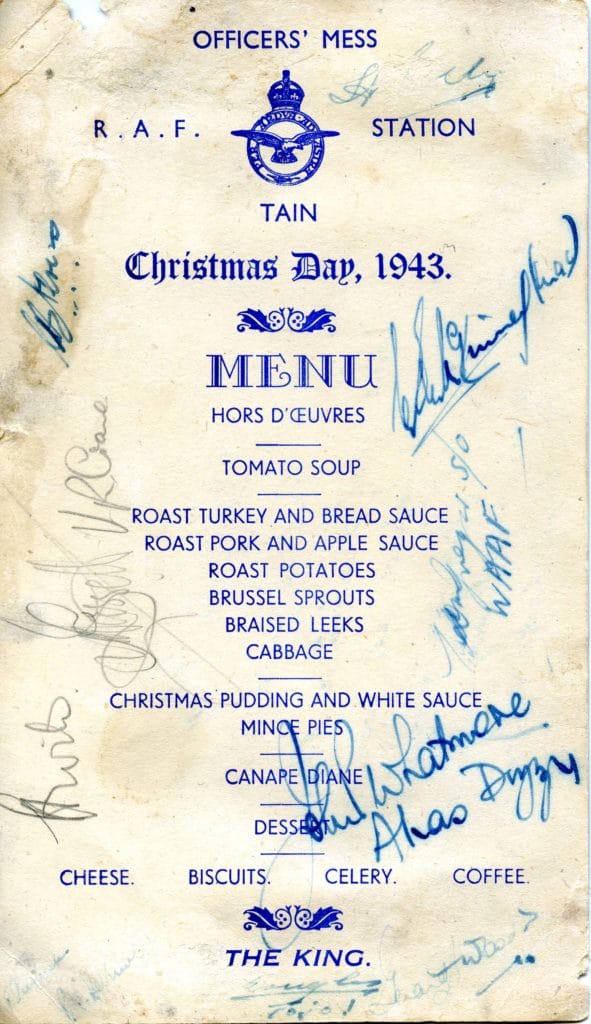 OFFICERS' MESS
R.A.F. STATION
PER ARDUA AD ASTRA
TAIN
Christmas Day, 1943.
MENU
HORS D'ŒUVRES
TOMATO SOUP
ROAST TURKEY AND BREAD SAUCE
ROAST PORK AND APPLE SAUCE
ROAST POTATOES
BRUSSEL SPROUTS
BRAISED LEEKS
CABBAGE
CHRISTMAS PUDDING AND WHITE SAUCE
MINCE PIES
CANAPE DIANE
DESSERT
CHEESE. BISCUITS. CELERY. COFFEE.
THE KING.
VR Crane
S/O
WAAF
Whatmore
Akas Dizzy